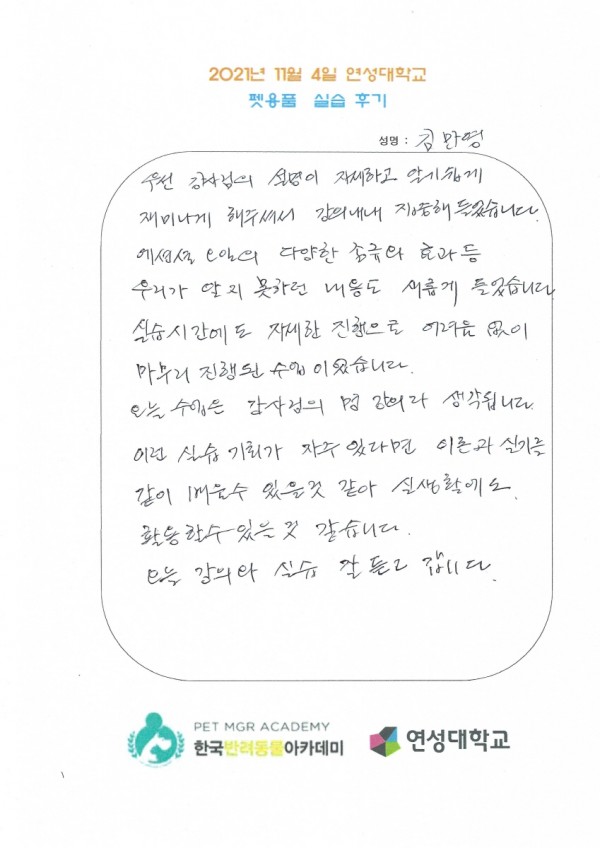 2021년 11월 4일 연성대학교
펫용품 실습 후기
성명 : 김만영
우선 강사님의 설명이 자세하고 알기쉽게
재미나게 해주셔서 강의내내 집중해 들었습니다.
에센셜 오일의 다양한 종류와 효과 등
우리가 알지 못하던 내용도 새롭게 들었습니다
실습시간에도 자세한 진행으로 어려움 없이
마무리 진행된 수업이었습니다.
오늘 수업은 강사님의 명 강의라 생각됩니다.
이런 실습 기회가 자주 있다면 이론과 실기를
같이 배울수 있을것 같아 실생활에도
활용할수 있을것 같습니다.
오늘 강의와 실습 잘 듣고 갑니다.
PET MGR ACADEMY
한국반려동물아카데미
연성대학교